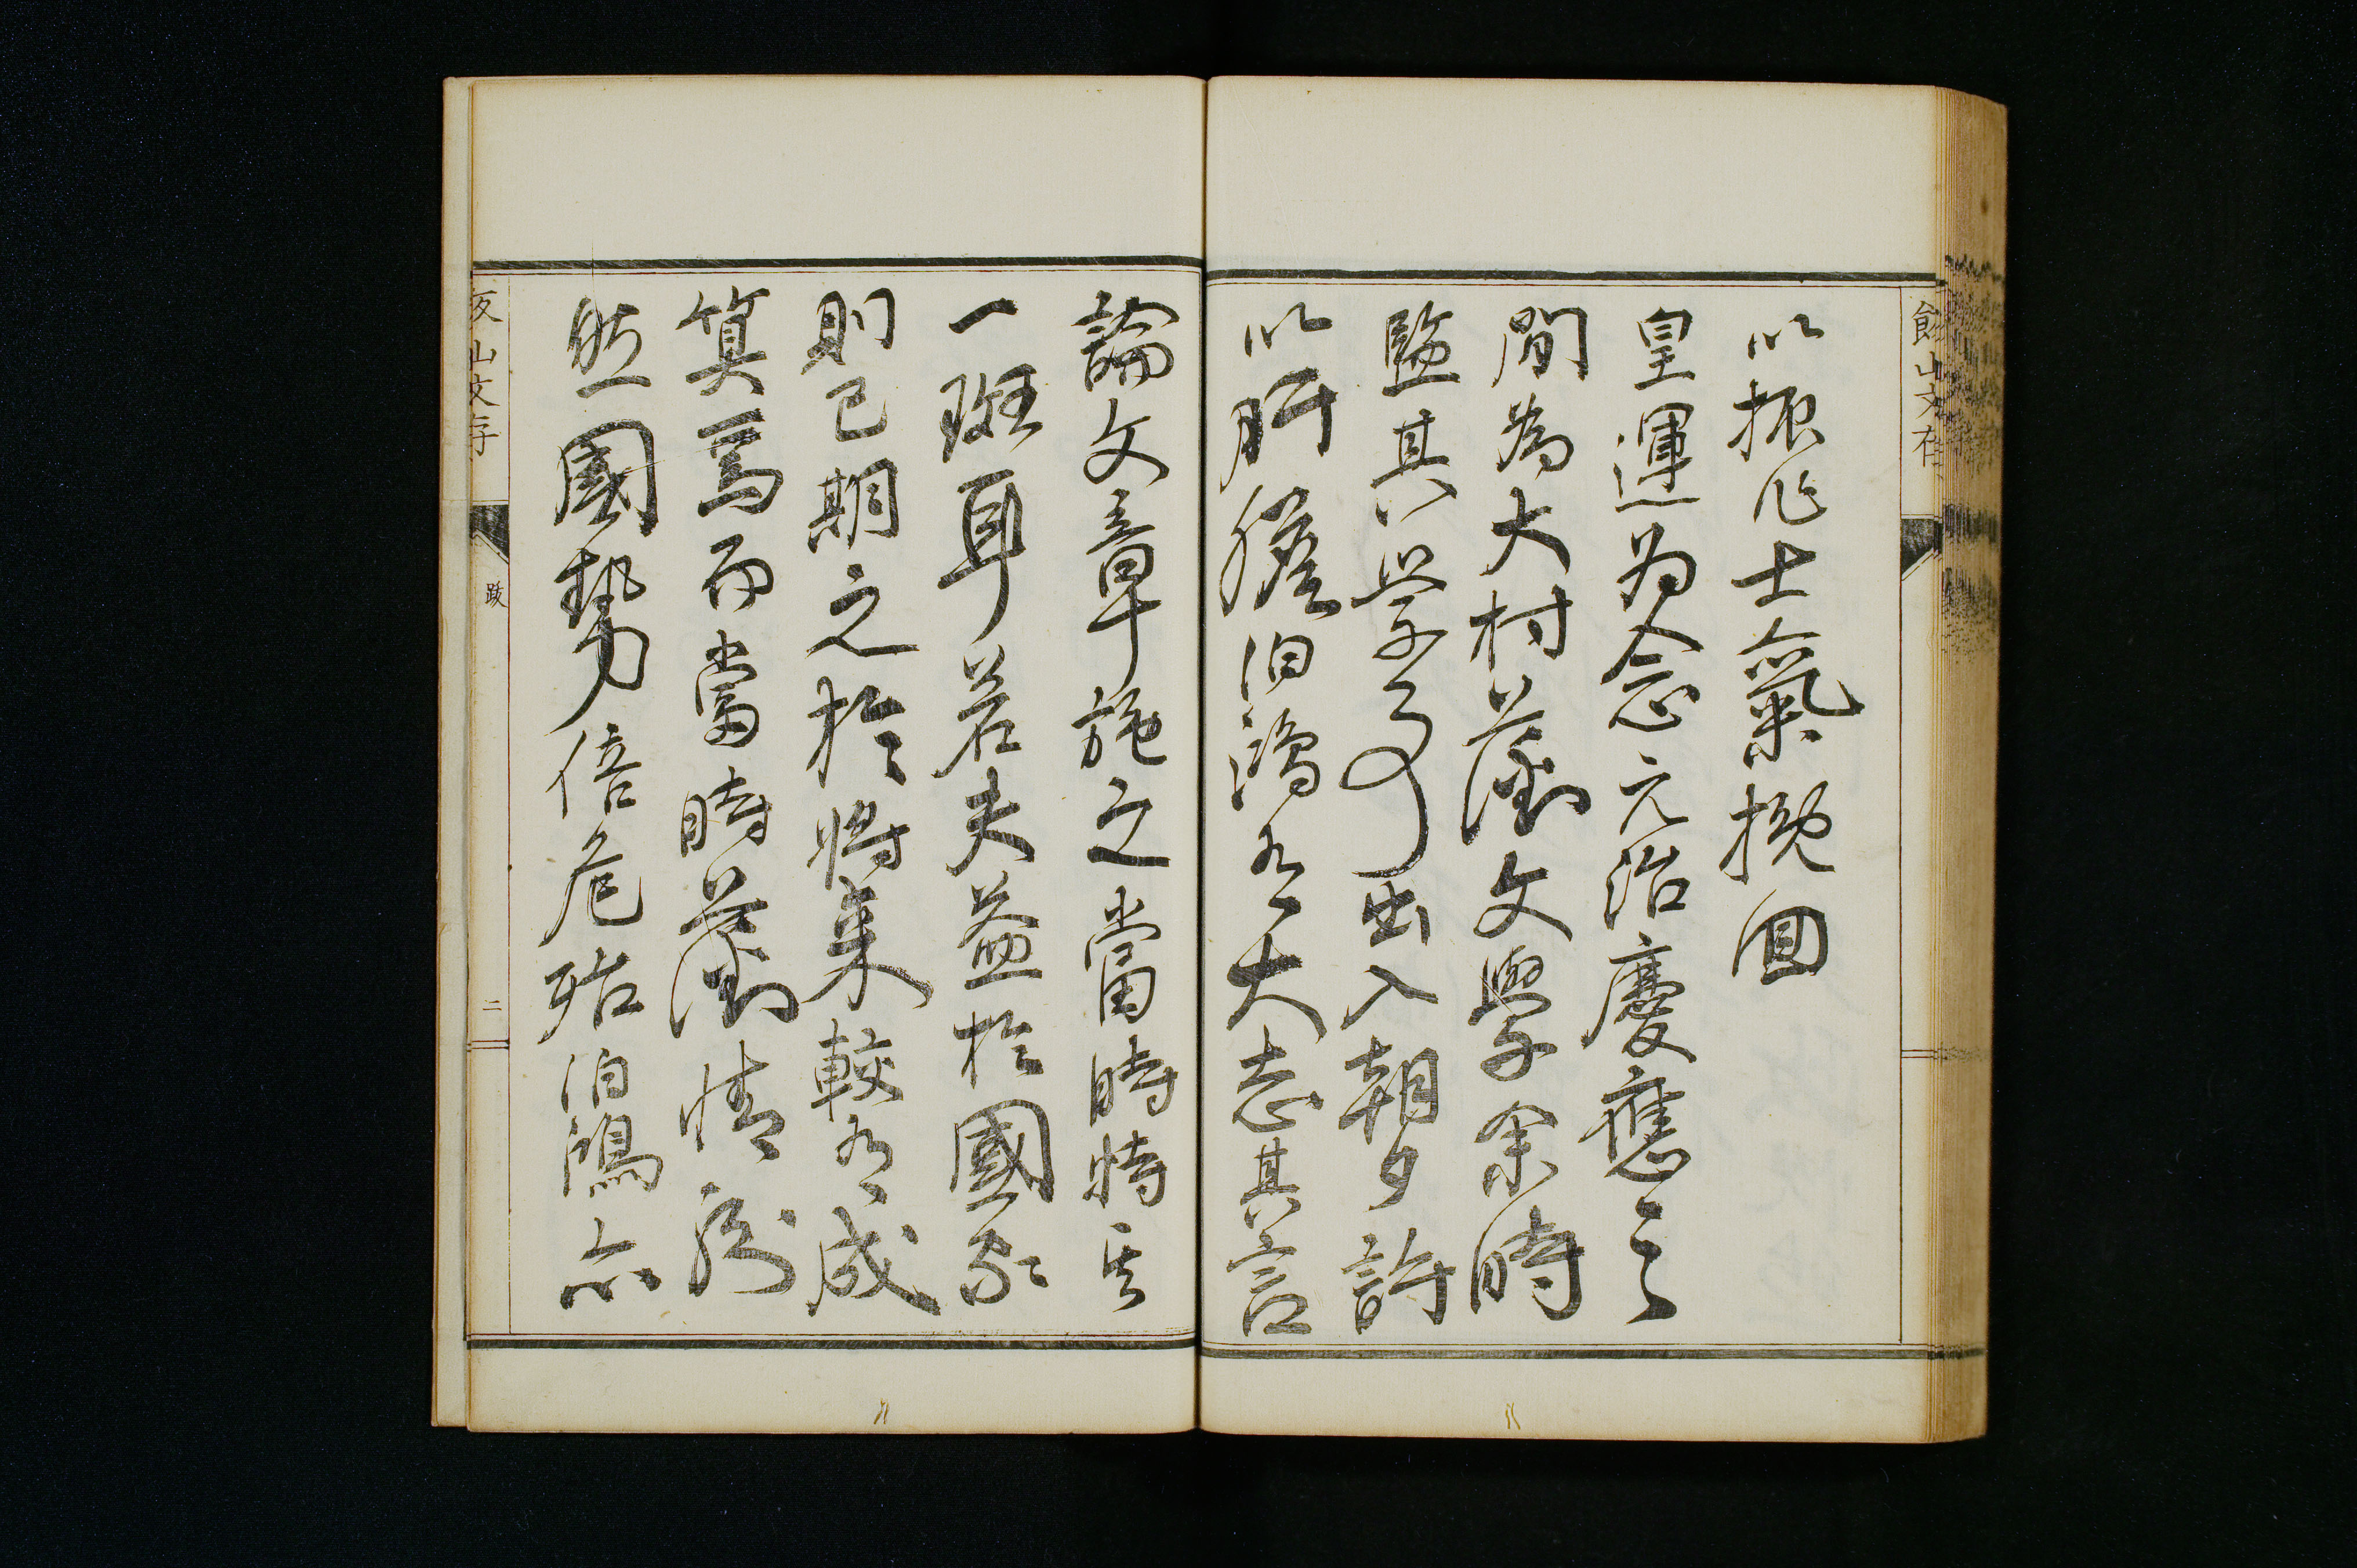 飯山文存
以振作士氣挽回
皇運為念元治慶應之
間為大村藩文學余時
監其學事出入朝夕許
以肝膽伯鴻有大志其言
論文章施之當時特其
一斑耳若夫益於國家
則已期之於將来較有成
算焉而當時藩情
然國勢倍危殆伯鴻亦
飯山文存
跋
二